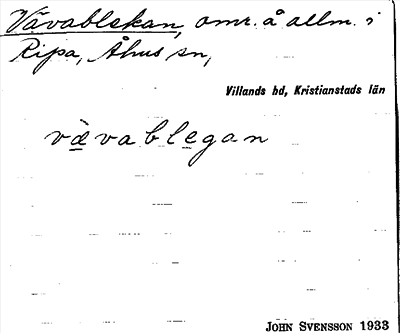 Vävablekan, omr. å allm. i
Ripa, Åhus sn,
Villands hd, Kristianstads län
vä̀vablegan
JOHN SVENSSON 1933